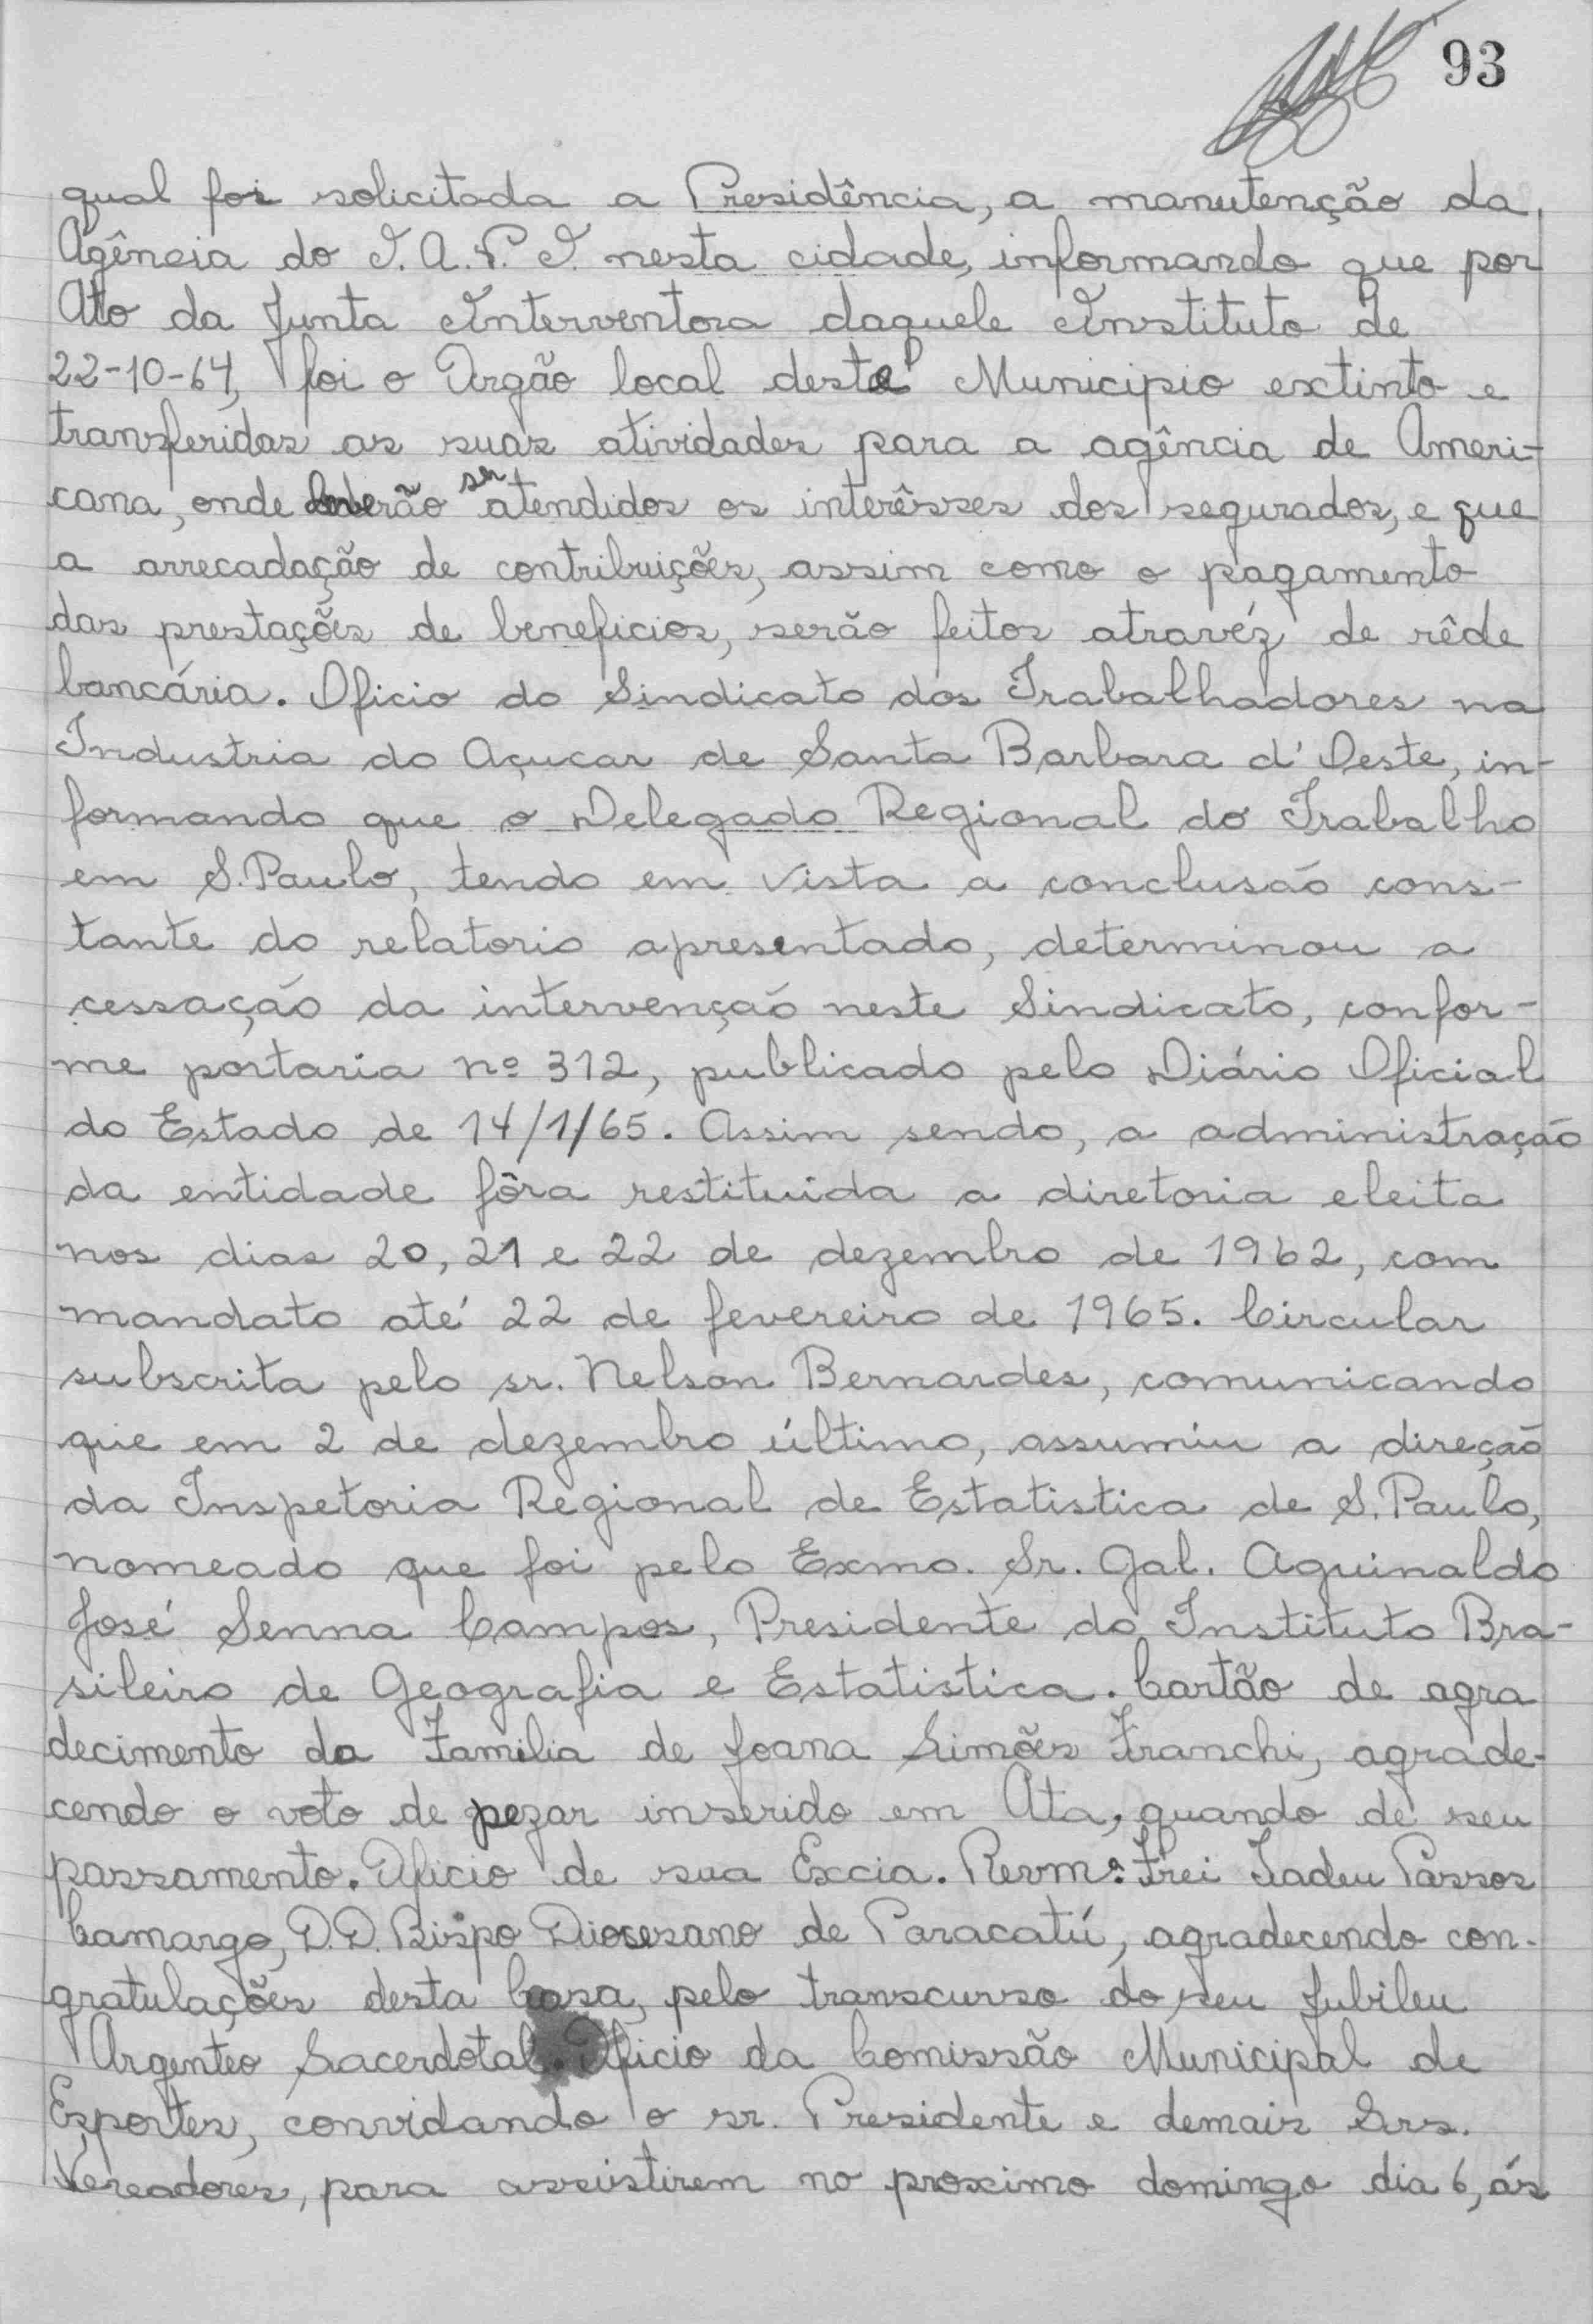 93
qual foi solicitada a Presidência, a manutenção da
Agência do I.A.P.I. nesta cidade, informando que por
Ato da Junta Interventora daquele Instituto de
22-10-64, foi o Orgão local deste Municipio extinto e
transferidas as suas atividades para a agência de Ameri-
cana, onde deverão ser atendidos os interêsses dos segurados, e que
a arrecadação de contribuições, assim como o pagamento
das prestações de beneficios, serão feitos atravéz de rêde
bancária. Oficio do Sindicato dos Trabalhadores na
Industria do Açucar de Santa Barbara d'Oeste, in-
formando que o Delegado Regional do Trabalho
em S. Paulo, tendo em vista a conclusão cons-
tante do relatorio apresentado, determinou a
cessação da intervenção neste Sindicato, confor-
me portaria nº 312, publicado pelo Diário Oficial
do Estado de 14/1/65. Assim sendo, a administração
da entidade fôra restituida a diretoria eleita
nos dias 20, 21 e 22 de dezembro de 1962, com
mandato até 22 de fevereiro de 1965. Circular
subscrita pelo sr. Nelson Bernardes, comunicando
que em 2 de dezembro último, assumiu a direção
da Inspetoria Regional de Estatistica de S. Paulo,
nomeado que foi pelo Exmo. Sr. Gal. Aguinaldo
José Senna Campos, Presidente do Instituto Bra-
sileiro de Geografia e Estatistica. Cartão de agra
decimento da Familia de Joana Simões Franchi, agrade-
cendo o voto de pezar inserido em Ata, quando de seu
passamento. Oficio de sua Excia. Revmª. Frei Tadeu Passos
Camargo, D.D. Bispo Diocesano de Paracatú, agradecendo con-
gratulações desta Casa, pelo transcurso do seu Jubileu
Argenteo Sacerdotal. Oficio da Comissão Municipal de
Esportes, convidando o sr. Presidente e demais Srs.
Vereadores, para assistirem no proximo domingo dia 6, ás